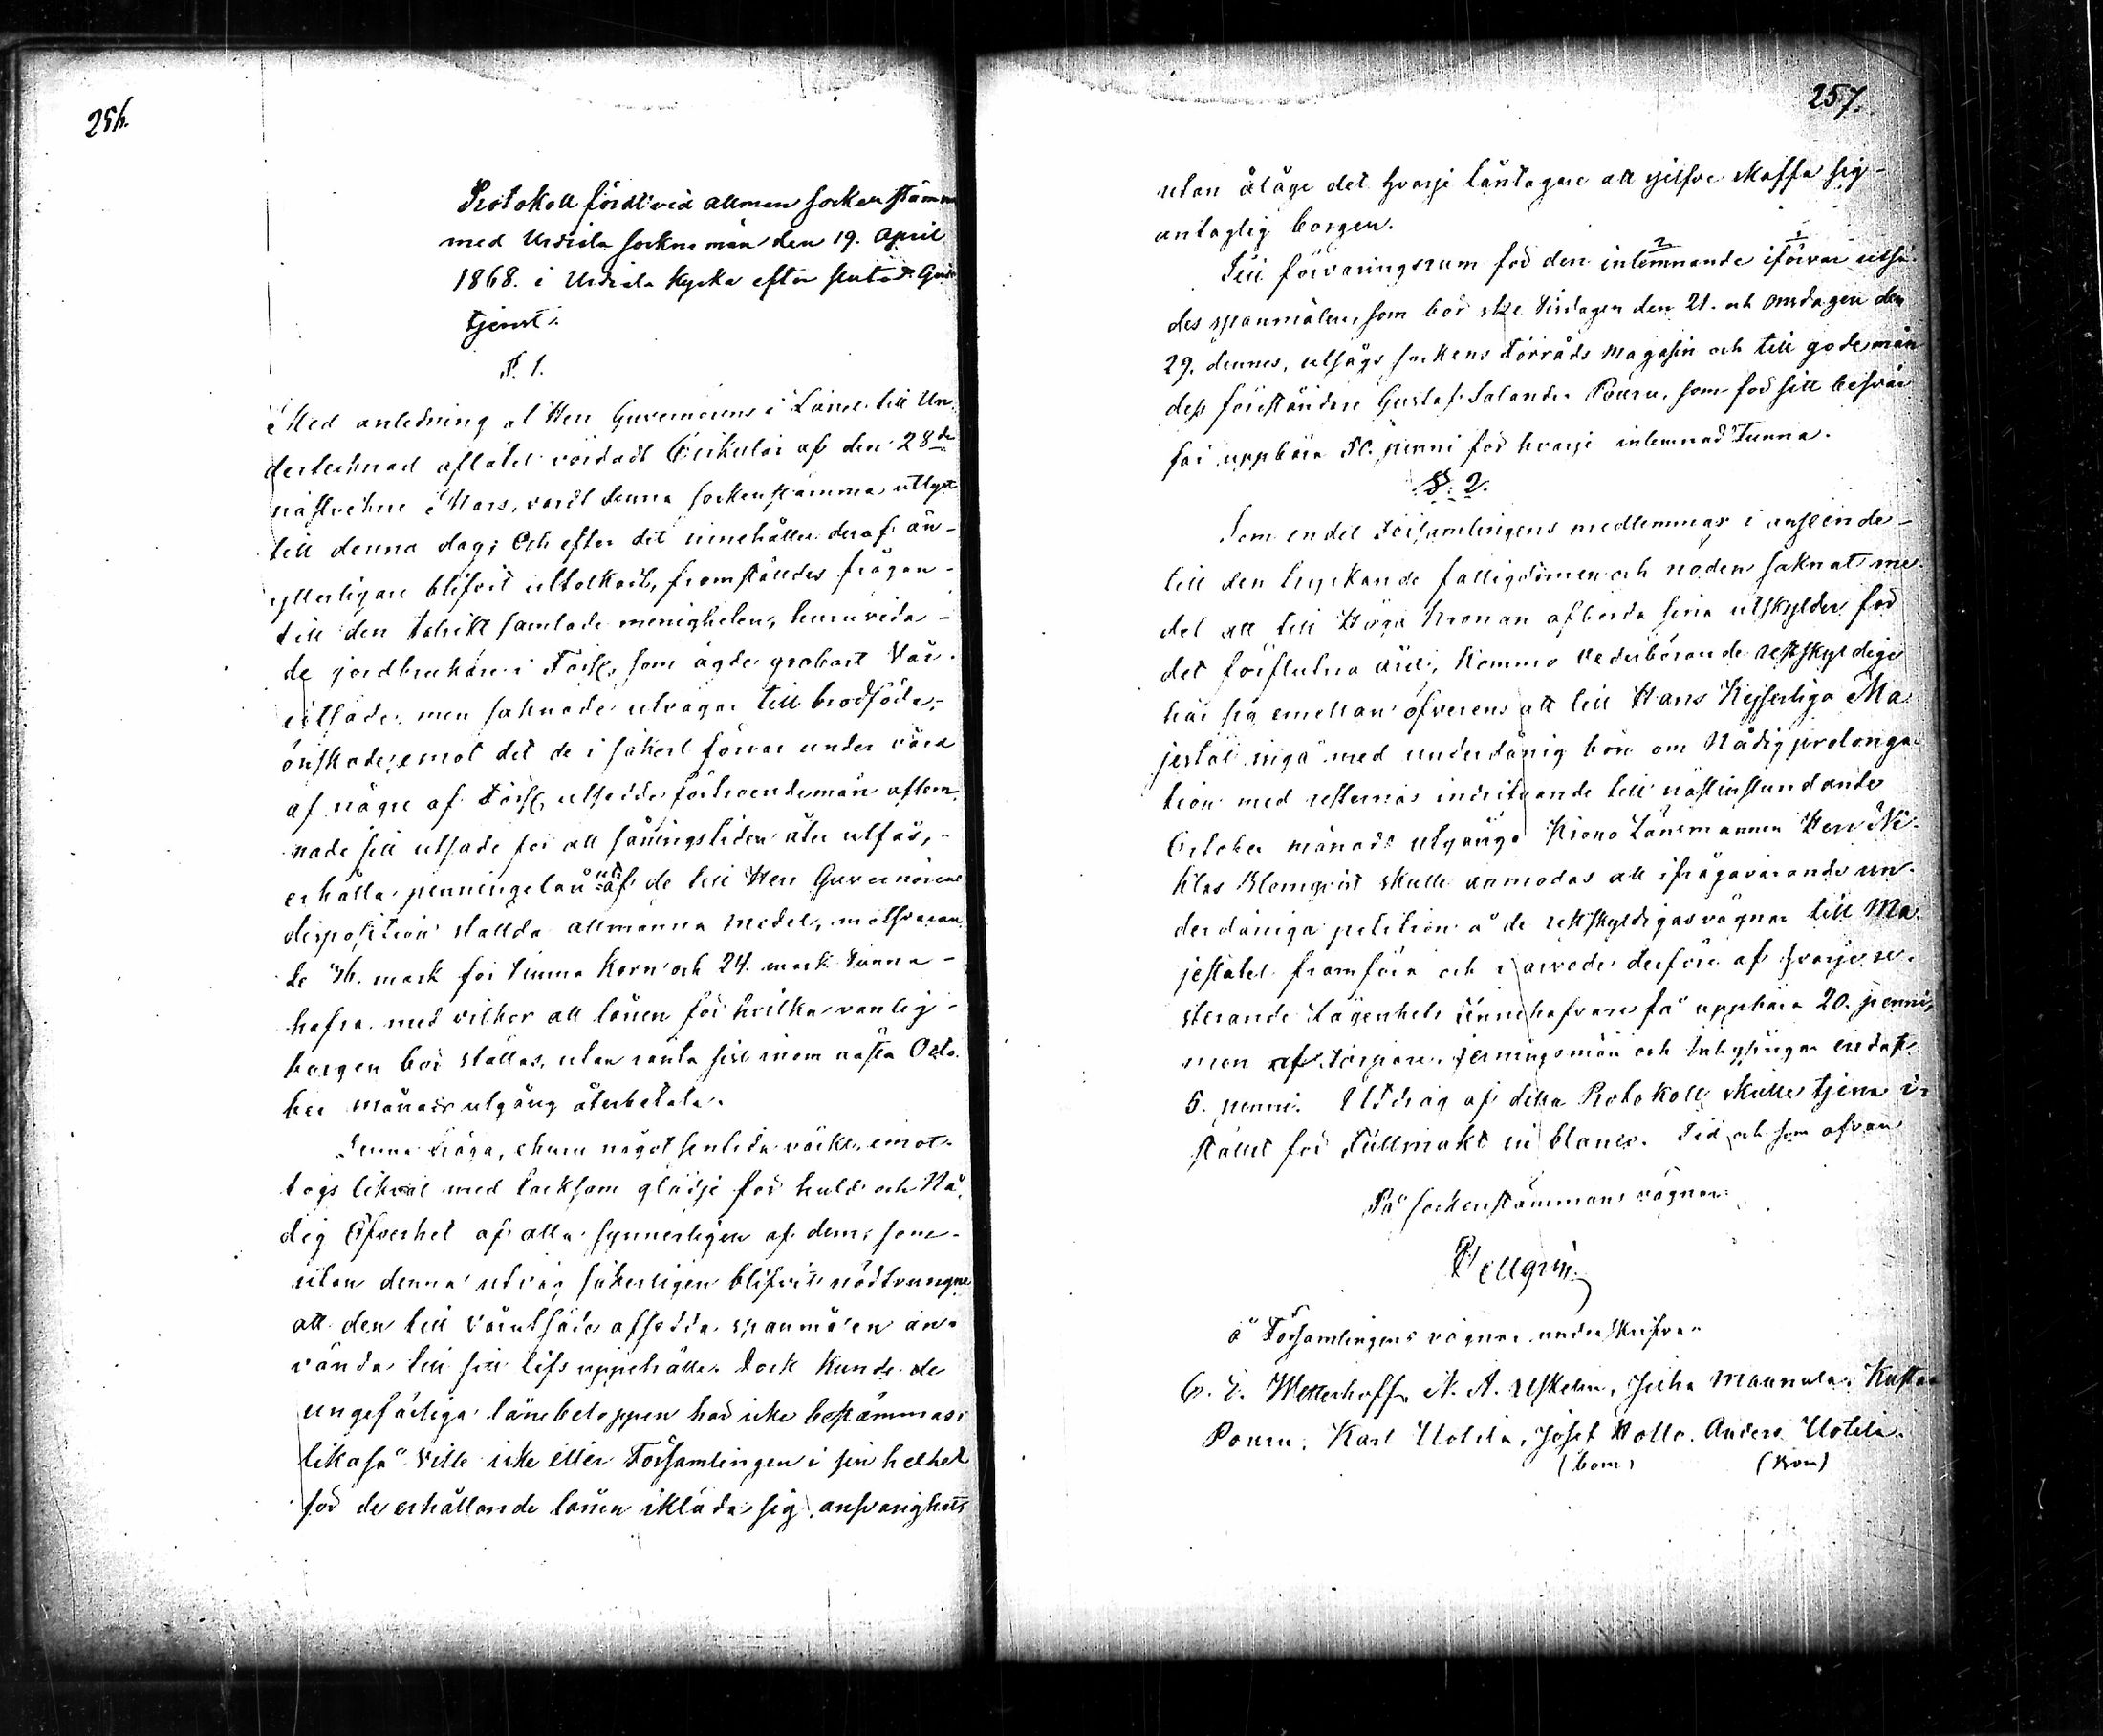 256.
Protokoll fördt vid allmen sockenstämma
med Urdiala sockne män den 19. April
1868. i Urdiala kyrka efter slutad Guds
tjenst.
§. 1.
Med anledning af Herr Guvernörens i Länet till Un-
dertecknad aflåtet vördadt Cirkulär af den 28de
nästvekne Mars, vardt denna sockenstämma utlyst
till denna dag; Och efter det innehållet deraf än-
ytterligare blifvit uttolkadt, framställdes frågan
till den talrikt samlade menigheten, huruvida
de jordbrukare i Förs:, som ägde grobart Vår-
utsäde men saknade utvägar till brödföda,
önskade, emot det de i säkert förvar under vård
af någre af Förs: utsedde förtroendemän aflem-
nade sitt utsäde för att såningstiden åter utfås,
erhålla penningelån utaf de till Herr Guvernörens
disposition stallda allmänna medel, motsvaran-
de 36. mark för Tunna Korn och 24. mark Tunna
hafra med vilkor att lånen för hvilka vanlig
borgen bör ställas, utan ränta sist inom nästa Octo-
ber månads utgång återbetala.
Denna fråga, ehuru något sentida väckt, emot-
togs likväl med tacksam glädje för huld och Nå-
dig Öfverhet af alla synnerligen af dem, som
utan denna utväg säkerligen blifvit nödtvungne
att den till Vårutsäde afsedda spanmålen an-
vända till sitt lifsuppehälle. Dock kunde de
ungefärliga lånebeloppen här icke bestämmas;
likaså ville icke eller Församlingen i sin helhet
för de erhållande lånen ikläda sig ansvarighets
257.
utan ålåge det hvarje låntagare att sjelfve skaffa sig
antaglig borgen.
Till förvaringsrum för den intemnande 2 iförvar 1 utsä-
des spanmålen, som bör ske Tisdagen den 21. och Onsdagen den
29. dennes, utsågs sockens Förråds Magasin och till gode män
dess föreståndare Gustaf Salander Pouru, som för sitt besvär
får uppbära 50. penni för hvarje inlemnad Tunna.
§. 2.
Som en del Församlingens medlemmar i anseende
till den tryckande fattigdomen och nöden saknat me-
del att till Höga Kronan afbörda sina utskylder för
det förflutna året, kommo vederbörande restskyldige
här sig emellan öfverens att till Hans Kejserliga Ma-
jestät ingå med underdånig bön om Nådig prolonga-
tion med resternas indrifvande till nästinstundande
October månads utgång. Krono Länsmannen Herr Ni-
klas Blomqvist skulle anmodas att ifrågavarande un-
derdåniga petition å de restskyldigas vägnar till Ma-
jestätet framföra och i arvode derföre af hvarje re-
sterande Lägenhets innehafvare få uppbära 20. penni,
men af Torpare, jerningsmän och Inhysingar endast
5. penni. Utdrag af detta Protokoll skulle tjena i
stället för Fullmakt in blanco. Tid och som ofvan
På sockenstämmans vägnar:
Pellgrén.
å Församlingens vägnar underskrifva:
C. E. Wetterhoff. N. A. Uskelin, Juha Maunula. Kustaa
Pouru. Karl Uotila, Josef Hollo. Anders Uotila.
(bom) (bom)